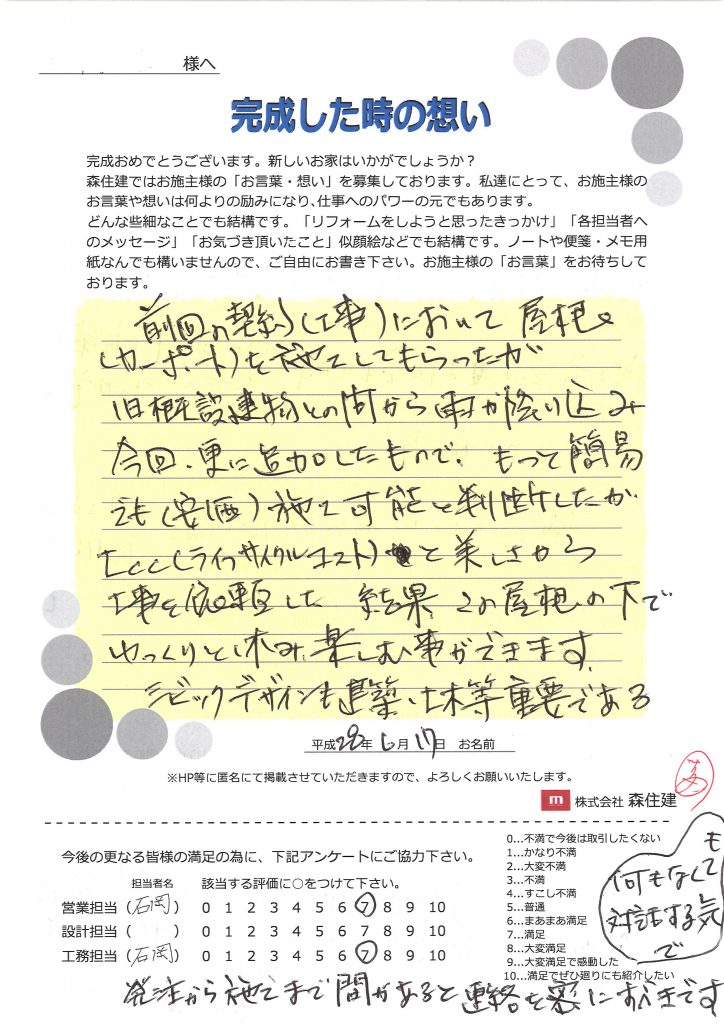 様へ
完成した時の想い
完成おめでとうございます。新しいお家はいかがでしょうか？
森住建ではお施主様の「お言葉・想い」を募集しております。私達にとって、お施主様の
お言葉や想いは何よりの励みになり、仕事へのパワーの元でもあります。
どんな些細なことでも結構です。「リフォームをしようと思ったきっかけ」「各担当者へ
のメッセージ」「お気づき頂いたこと」似顔絵などでも結構です。ノートや便箋・メモ用
紙なんでも構いませんので、ご自由にお書き下さい。お施主様の「お言葉」をお待ちして
おります。
前回の契約(工事)において 屋根
(カーポート)を施工してもらったが
旧概設建物との間から雨が降り込み
今回、更に追加したもので、もって簡易
でも(安価)施工可能と判断したが
LCC(ライフサイクルコスト)と美しさから
工事を依頼した 結果 この屋根の下で
ゆっくりと休み 楽しむ事ができます
シビックデザインも建築・土木等重要である
平成28年6月17日 お名前
※HP等に匿名にて掲載させていただきますので、よろしくお願いいたします。
m 株式会社 森住建
今後の更なる皆様の満足の為に、下記アンケートにご協力下さい。
担当者名 該当する評価に○をつけて下さい。
営業担当(石岡) 0 1 2 3 4 5 6 7 8 9 10
設計担当( ) 0 1 2 3 4 5 6 7 8 9 10
工務担当(石岡) 0 1 2 3 4 5 6 7 8 9 10
0…不満で今後は取引したくない
1…かなり不満
2…大変不満
3…不満
4…すこし不満
5…普通
6…まあまあ満足
7…満足
8…大変満足
9…大変満足で感動した
10…満足でぜひ廻りにも紹介したい
発注から施工まで間があると連絡を密にすべきです
何もなくても
対話する気
で